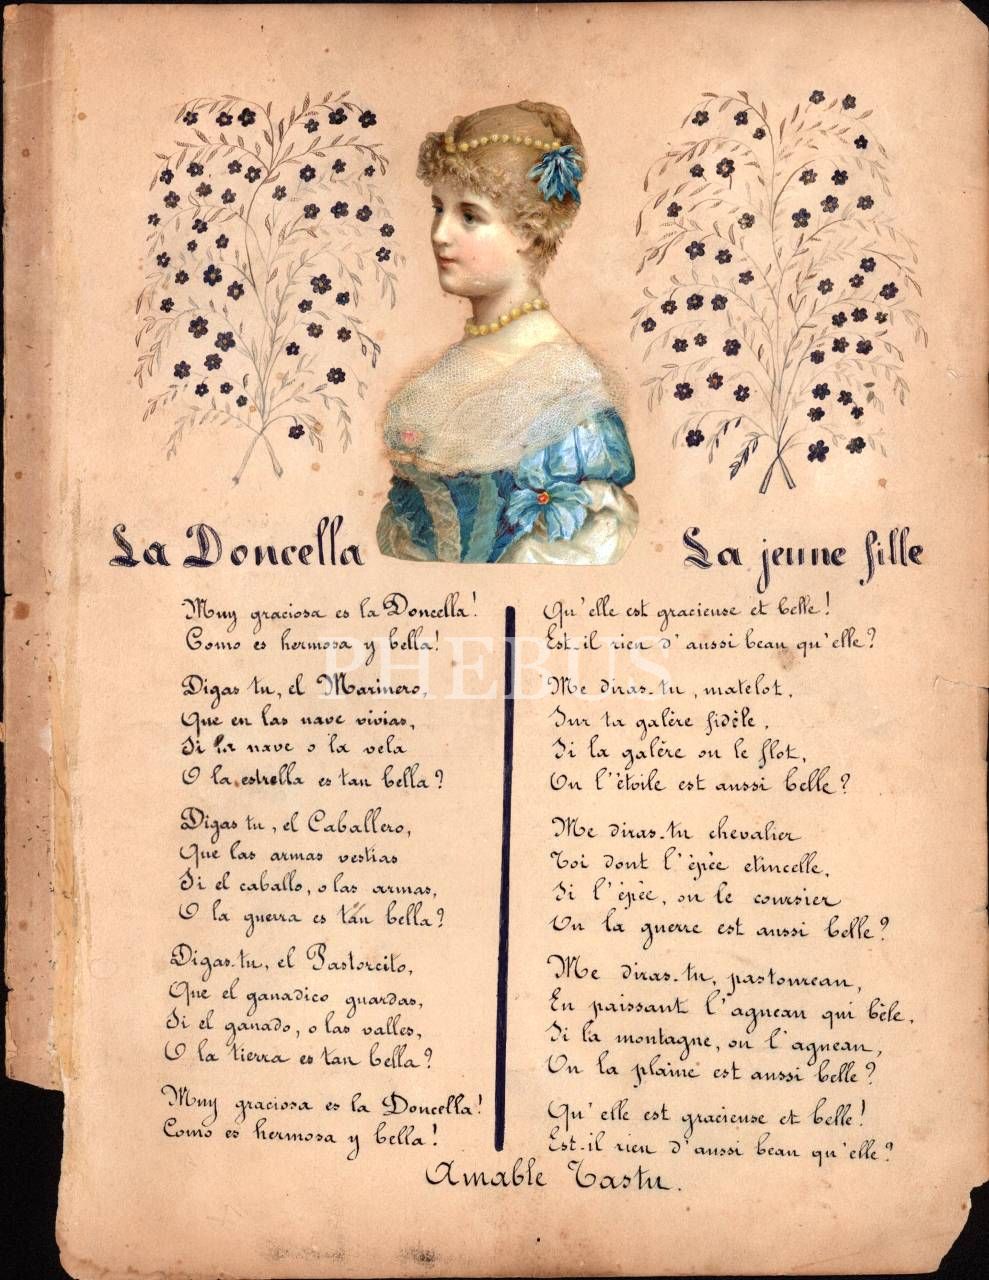 La Doncella
Muy graciosa es la Doncella!
Como es hermosa y bella!
Digas tu, el Marinero,
Que en las nave vivias,
Si la nave o la vela
O la estrella es tan bella?
Digas tu, el Caballero,
Que las armas vestias
Si el caballo, o las armas,
O la guerra es tan bella?
Digas-tu, el Pastorcito,
Que el ganadico guardas,
Si el ganado, o las valles,
O la tierra es tan bella?
Muy graciosa es la Doncella!
Como es hermosa y bella!
La jeune fille
Qu'elle est gracieuse et belle!
Est-il rien d'aussi beau qu'elle?
Me diras-tu, matelot,
Sur ta galère fidèle,
Si la galère ou le flot,
Ou l'étoile est aussi belle?
Me diras-tu chevalier
Toi dont l'épée etincelle,
Si l'épée, ou le coursier
Ou la guerre est aussi belle?
Me diras-tu, pastoureau,
En paissant l'agneau qui bèle,
Si la montagne, ou l'agneau,
Ou la plaine est aussi belle?
Qu'elle est gracieuse et belle!
Est-il rien d'aussi beau qu'elle?
Amable Tastu.
PHEBUS